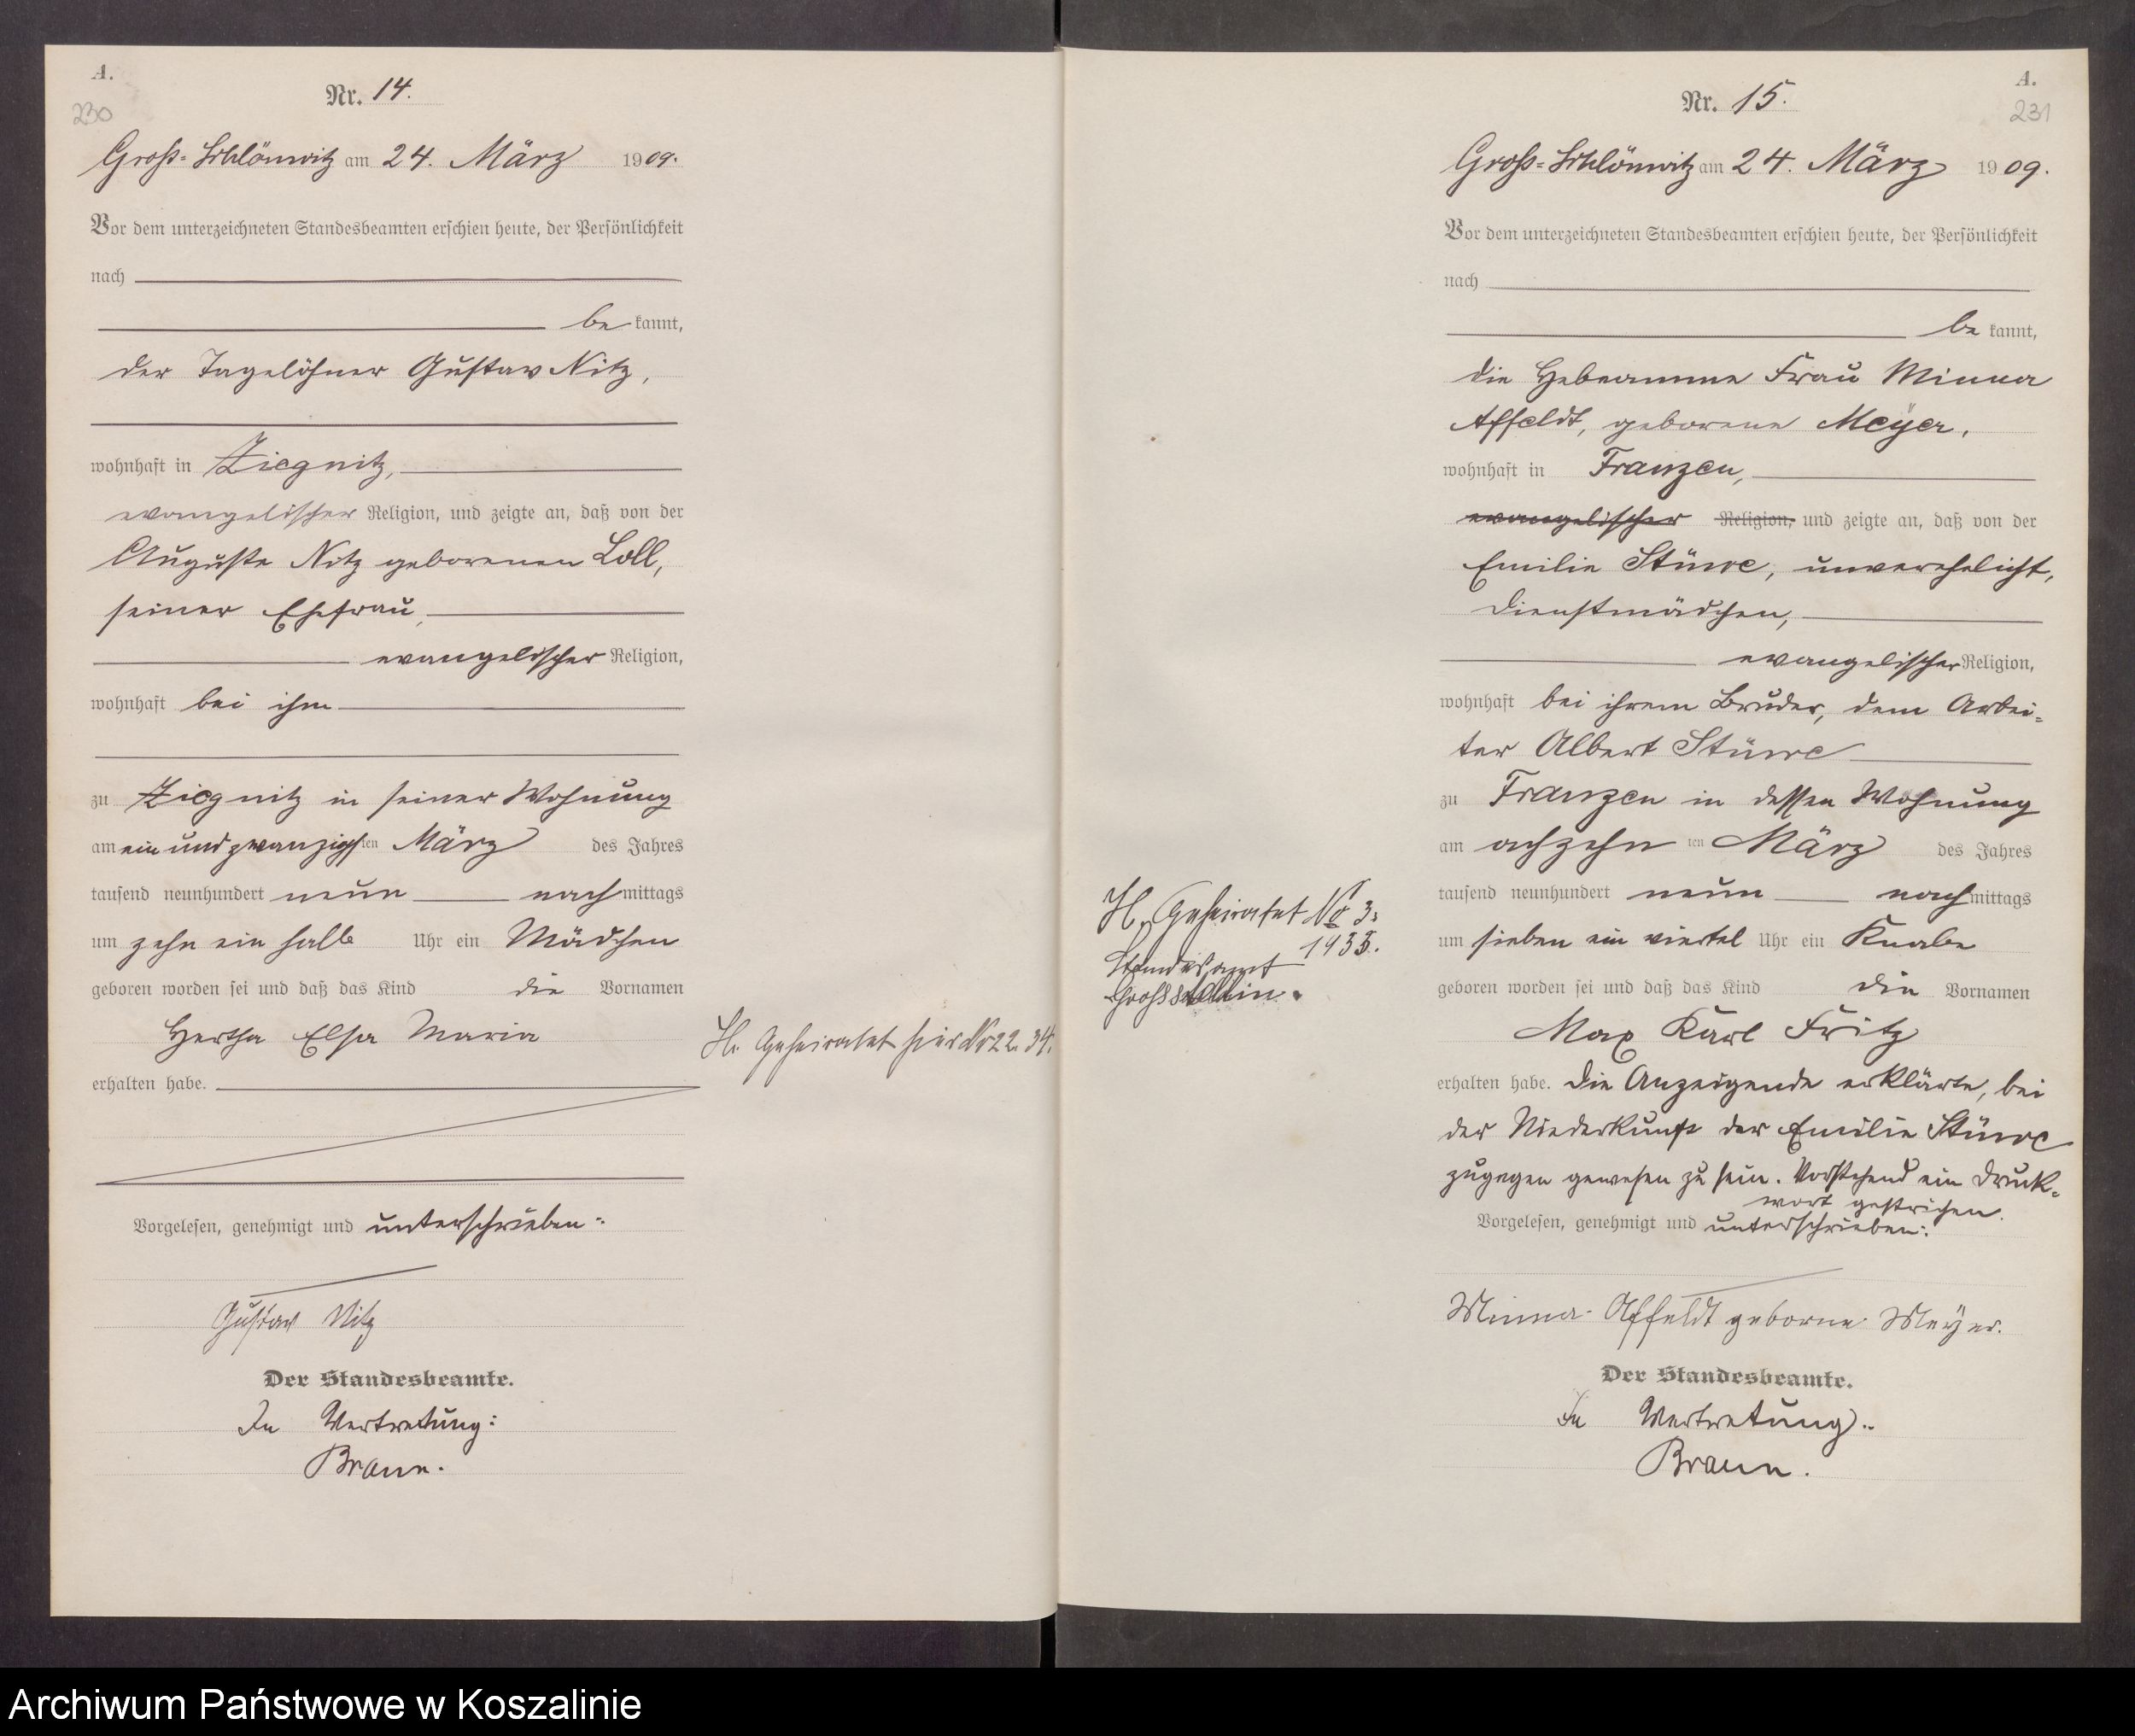 A.
230
Nr. 14.
Groß-Schlönwitz am 24. März 1909.
Vor dem unterzeichneten Standesbeamten erschien heute, der Persönlichkeit
nach
be kannt,
der Tagelöhner Gustav Nitz,
wohnhaft in Ziegnitz,
evangelischer Religion, und zeigte an, daß von der
Auguste Nitz geborenen Loll,
seiner Ehefrau,
evangelischer Religion,
wohnhaft bei ihm
zu Ziegnitz in seiner Wohnung
am ein und zwanzigsten März des Jahres
tausend neunhundert neun nachmittags
um zehn ein halb Uhr ein Mädchen
geboren worden sei und daß das Kind die Vornamen
Hertha Elsa Maria
erhalten habe.
Vorgelesen, genehmigt und unterschrieben:
Gustav Nitz
Der Standesbeamte.
In Vertretung:
Braun.
H. Geheiratet hier No 22. 34.
A.
231
Nr. 15.
Groß-Schlönwitz am 24. März 1909.
Vor dem unterzeichneten Standesbeamten erschien heute, der Persönlichkeit
nach
be kannt,
die Hebeamme Frau Minna
Affeldt, geborene Meyer,
wohnhaft in Franzen,
evangelischer Religion, und zeigte an, daß von der
Emilie Stüwe, unverehelicht,
Dienstmädchen,
evangelischer Religion,
wohnhaft bei ihrem Bruder, dem Arbei-
ter Albert Stüwe
zu Franzen in dessen Wohnung
am achzehn ten März des Jahres
tausend neunhundert neun nachmittags
um sieben ein viertel Uhr ein Knabe
geboren worden sei und daß das Kind die Vornamen
Max Karl Fritz
erhalten habe. Die Anzeigende erklärte, bei
der Niederkunft der Emilie Stüwe
zugegen gewesen zu sein. Vorstehend ein Druck-
wort gestrichen.
Vorgelesen, genehmigt und unterschrieben:
Minna Affeldt geborne Meyer.
Der Standesbeamte.
In Vertretung:
Braun.
H. Geheiratet No 3.
1933.
Standesamt
Groß
Archiwum Państwowe w Koszalinie